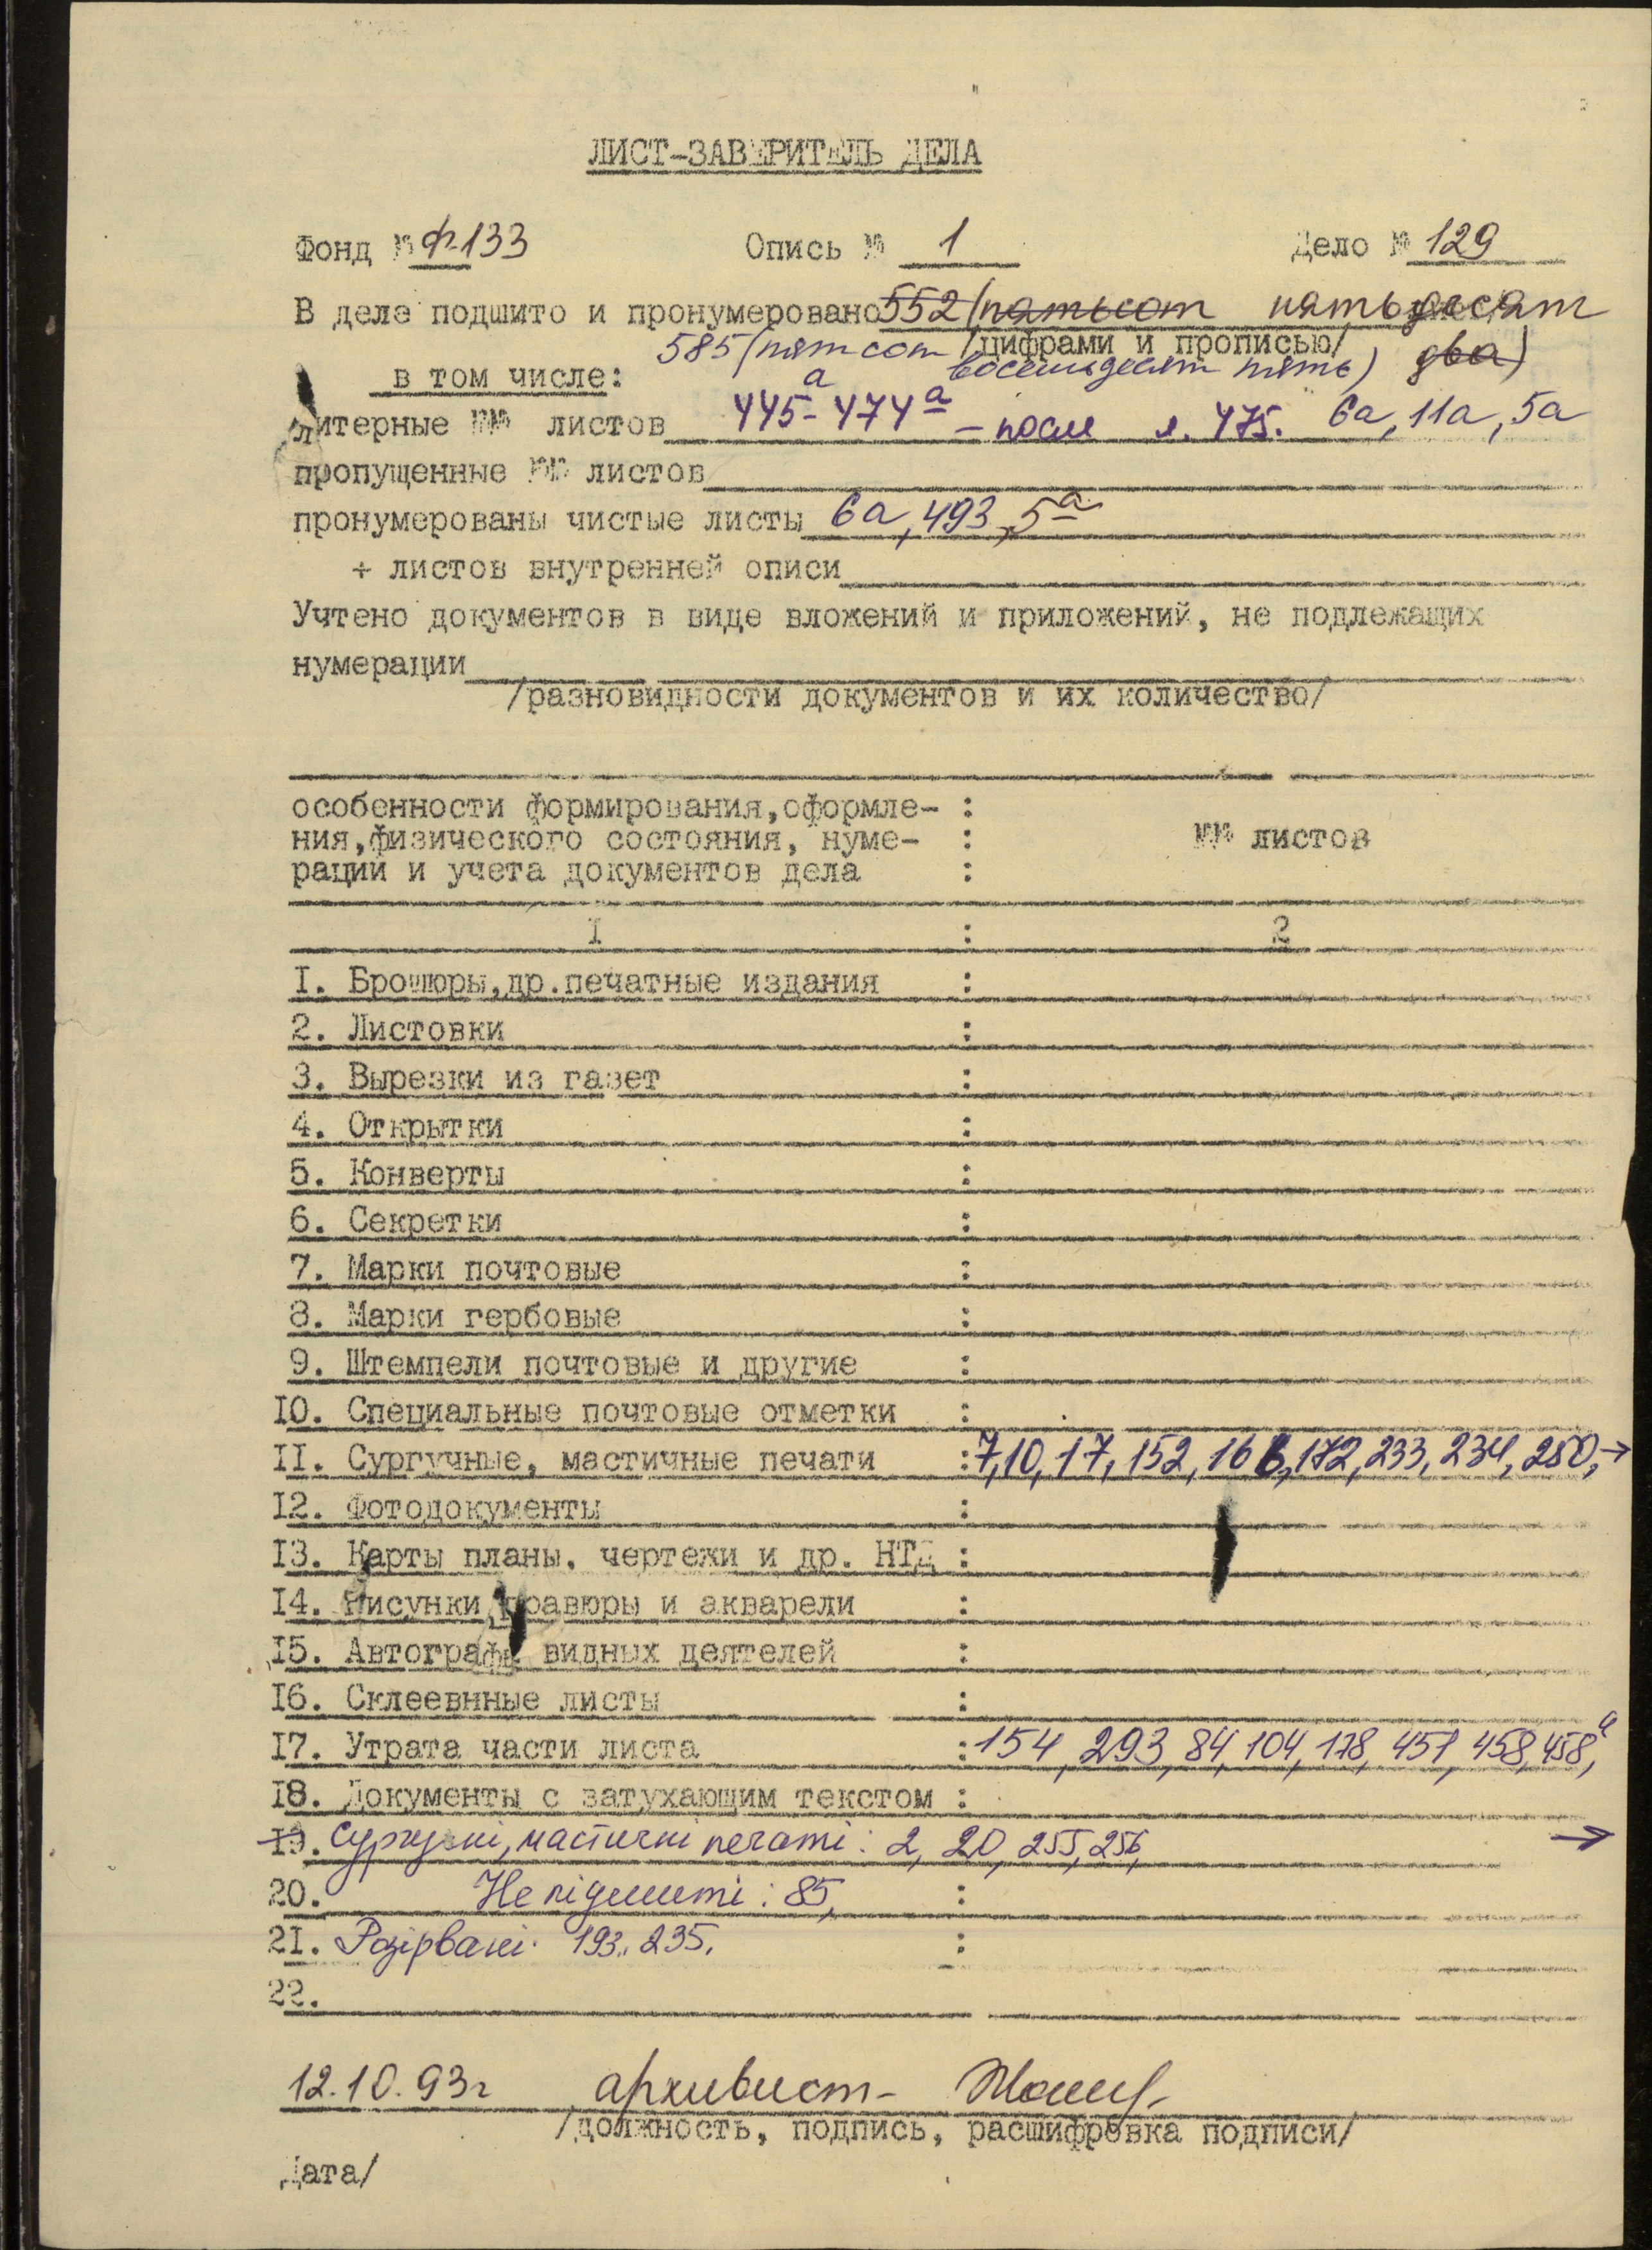 ЛИСТ-ЗАВЕРИТЕЛЬ ДЕЛА
Фонд № Ф-133 Опись № 1 Дело № 129
В деле подшито и пронумеровано 552 (пятьсот пятьдесят
585 (пятсот /цифрами и прописью/ два)
восемьдесят пять)
в том числе:
литерные №№ листов 445а-474а - после л. 475. 6а, 11а, 5а
пропущенные №№ листов
пронумерованы чистые листы 6а, 493, 5а
+ листов внутренней описи
Учтено документов в виде вложений и приложений, не подлежащих
нумерации
/разновидности документов и их количество/
особенности формирования,оформле- :
ния,физического состояния, нуме- : №№ листов
рации и учета документов дела :
I : 2
I. Брошюры,др.печатные издания :
2. Листовки :
3. Вырезки из газет :
4. Открытки :
5. Конверты :
6. Секретки :
7. Марки почтовые :
8. Марки гербовые :
9. Штемпели почтовые и другие :
I0. Специальные почтовые отметки :
II. Сургучные, мастичные печати : 7, 10, 17, 152, 166, 172, 233, 234, 250, →
I2. Фотодокументы :
I3. Карты планы, чертежи и др. НТД :
I4. Рисунки, гравюры и акварели :
I5. Автографы видных деятелей :
I6. Склеевнные листы :
I7. Утрата части листа : 154, 293, 84, 104, 178, 457, 458, 458а,
I8. Документы с затухающим текстом :
I9. Сургучні, мастичні печаті: 2, 20, 255, 256, →
20. Не підшиті: 85, :
2I. Розірвані: 193, 235. :
22.
12.10.93г архивист-
/должность, подпись, расшифровка подписи/
Дата/